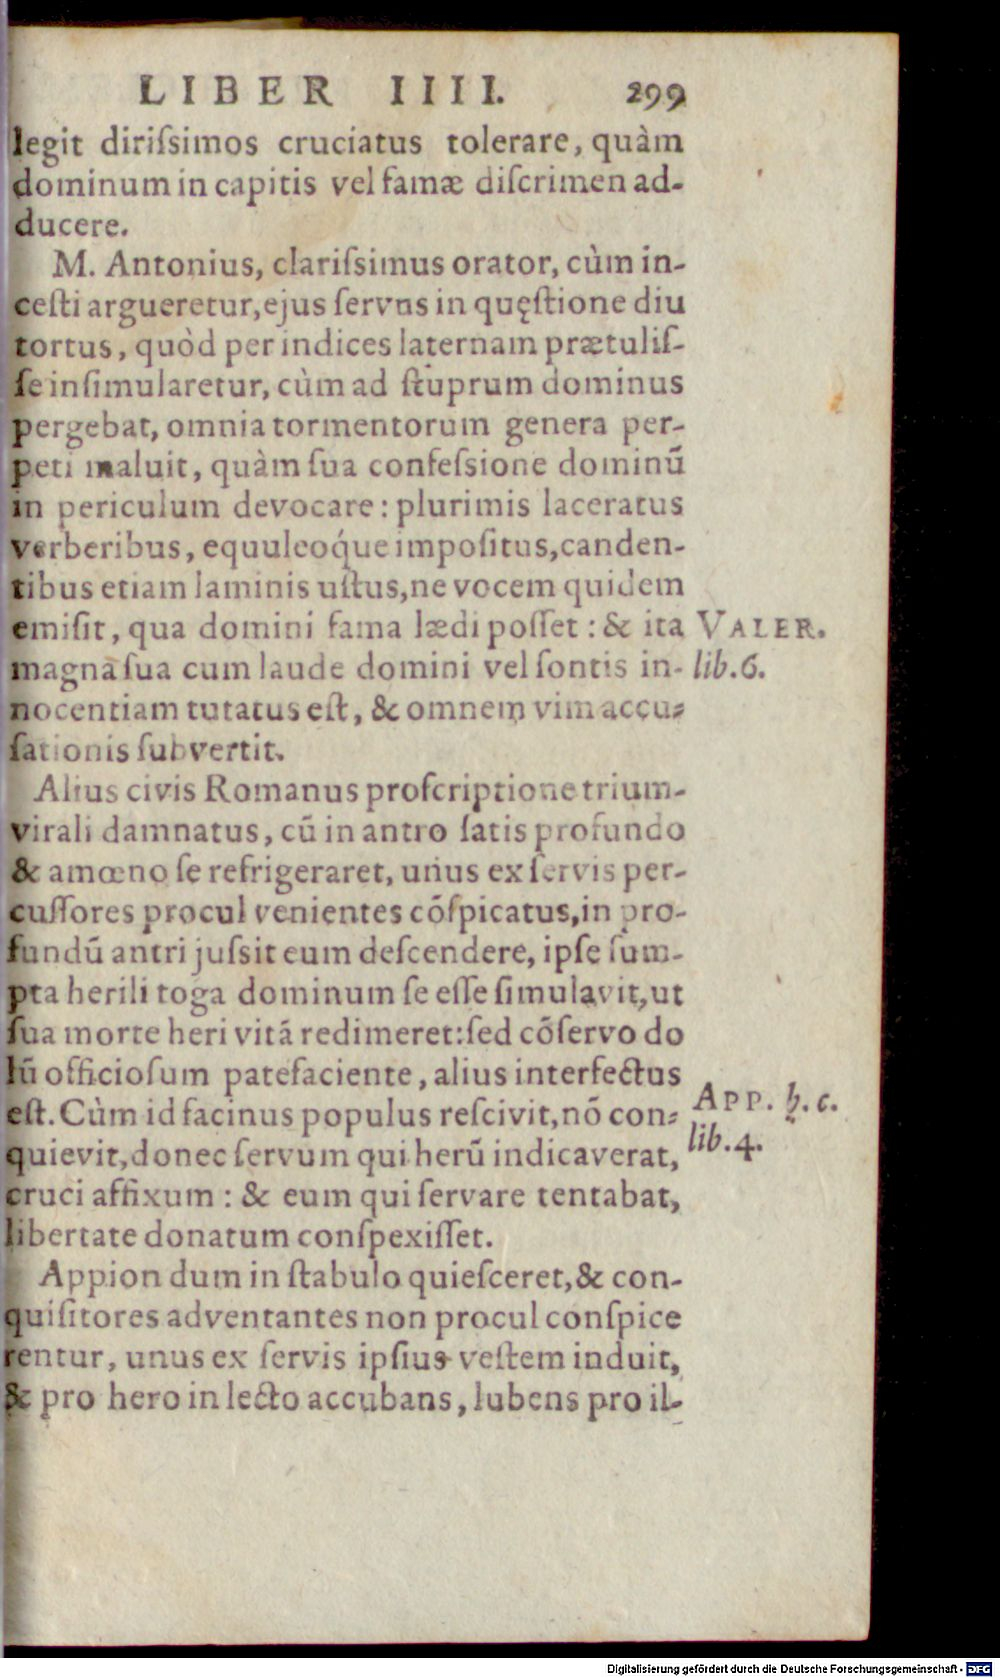 LIBER IIII. 299
legit dirissimos cruciatus tolerare, quàm
dominum in capitis vel famæ discrimen ad-
ducere.
M. Antonius, clarissimus orator, cùm in-
cesti argueretur, ejus servus in quęstione diu
tortus, quòd per indices laternam prætulis-
se insimularetur, cùm ad stuprum dominus
pergebat, omnia tormentorum genera per-
peti maluit, quàm sua confessione dominũ
in periculum devocare: plurimis laceratus
verberibus, equuleoq́ue impositus, canden-
tibus etiam laminis ustus, ne vocem quidem
emisit, qua domini fama lædi posset: & ita VALER.
magna sua cum laude domini vel sontis in- lib.6.
nocentiam tutatus est, & omnem vim accu-
sationis subvertit.
Alius civis Romanus proscriptione trium-
virali damnatus, cũ in antro satis profundo
& amœno se refrigeraret, unus ex servis per-
cussores procul venientes cõspicatus, in pro-
fundũ antri jussit eum descendere, ipse sum-
pta herili toga dominum se esse simulavit, ut
sua morte heri vitã redimeret: sed cõservo do
lũ officiosum patefaciente, alius interfectus
est. Cùm id facinus populus rescivit, nõ con- APP. b. c.
quievit, donec servum qui herũ indicaverat, lib.4.
cruci affixum: & eum qui servare tentabat,
libertate donatum conspexisset.
Appion dum in stabulo quiesceret, & con-
quisitores adventantes non procul conspice
rentur, unus ex servis ipsius vestem induit,
& pro hero in lecto accubans, lubens pro il-
Digitalisierung gefördert durch die Deutsche Forschungsgemeinschaft - DFG